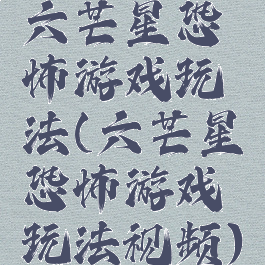 六芒星恐
怖游戏玩
法(六芒星
恐怖游戏
玩法视频)